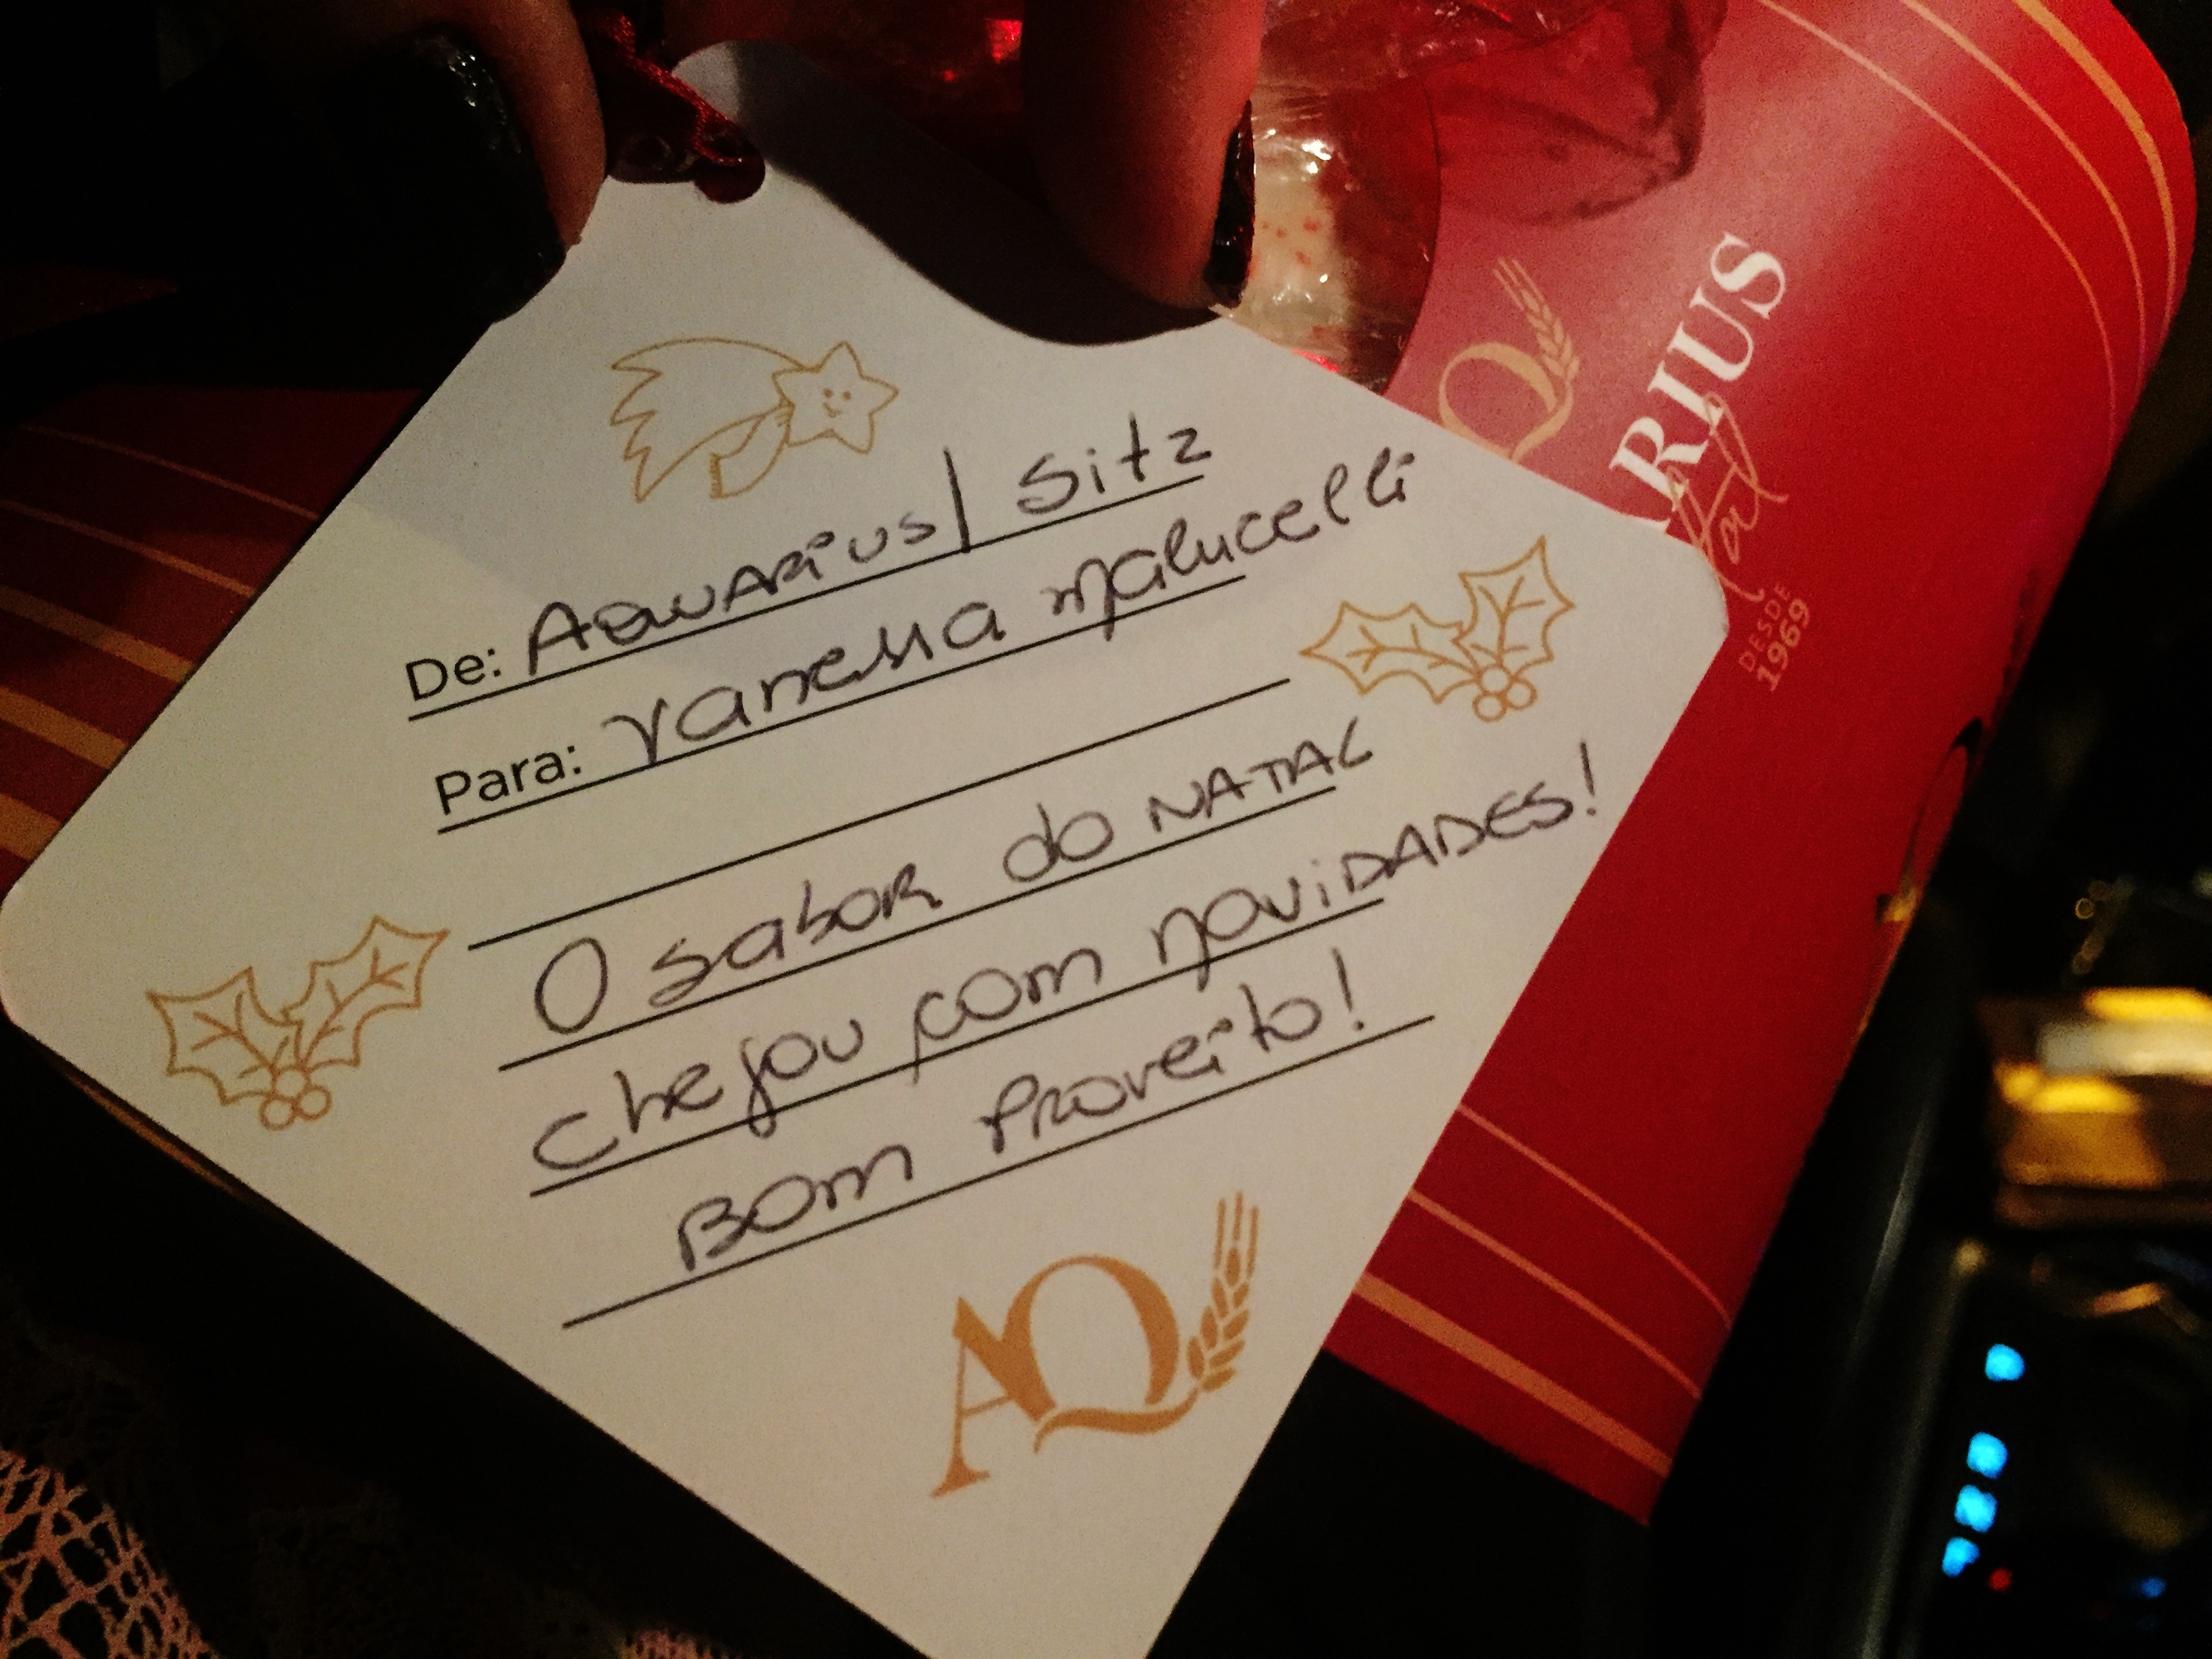 De: Aquarius/ Sitz
Para: Vanessa Malucelli
O sabor do NATAL
chegou com novidades!
Bom Proveito!
AQ
RIUS
DESDE
1969